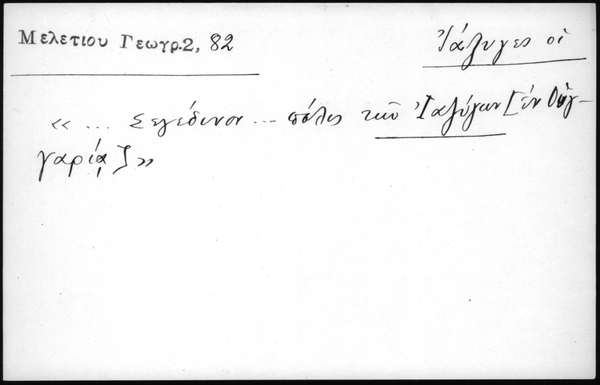 Μελετιου Γεωγρ.2, 82
Ἰάζυγες οἱ
« ... Σεγέδινον ... πόλις τῶν Ἰαζύγων [ἐν Οὑγ-
γαρίᾳ] »